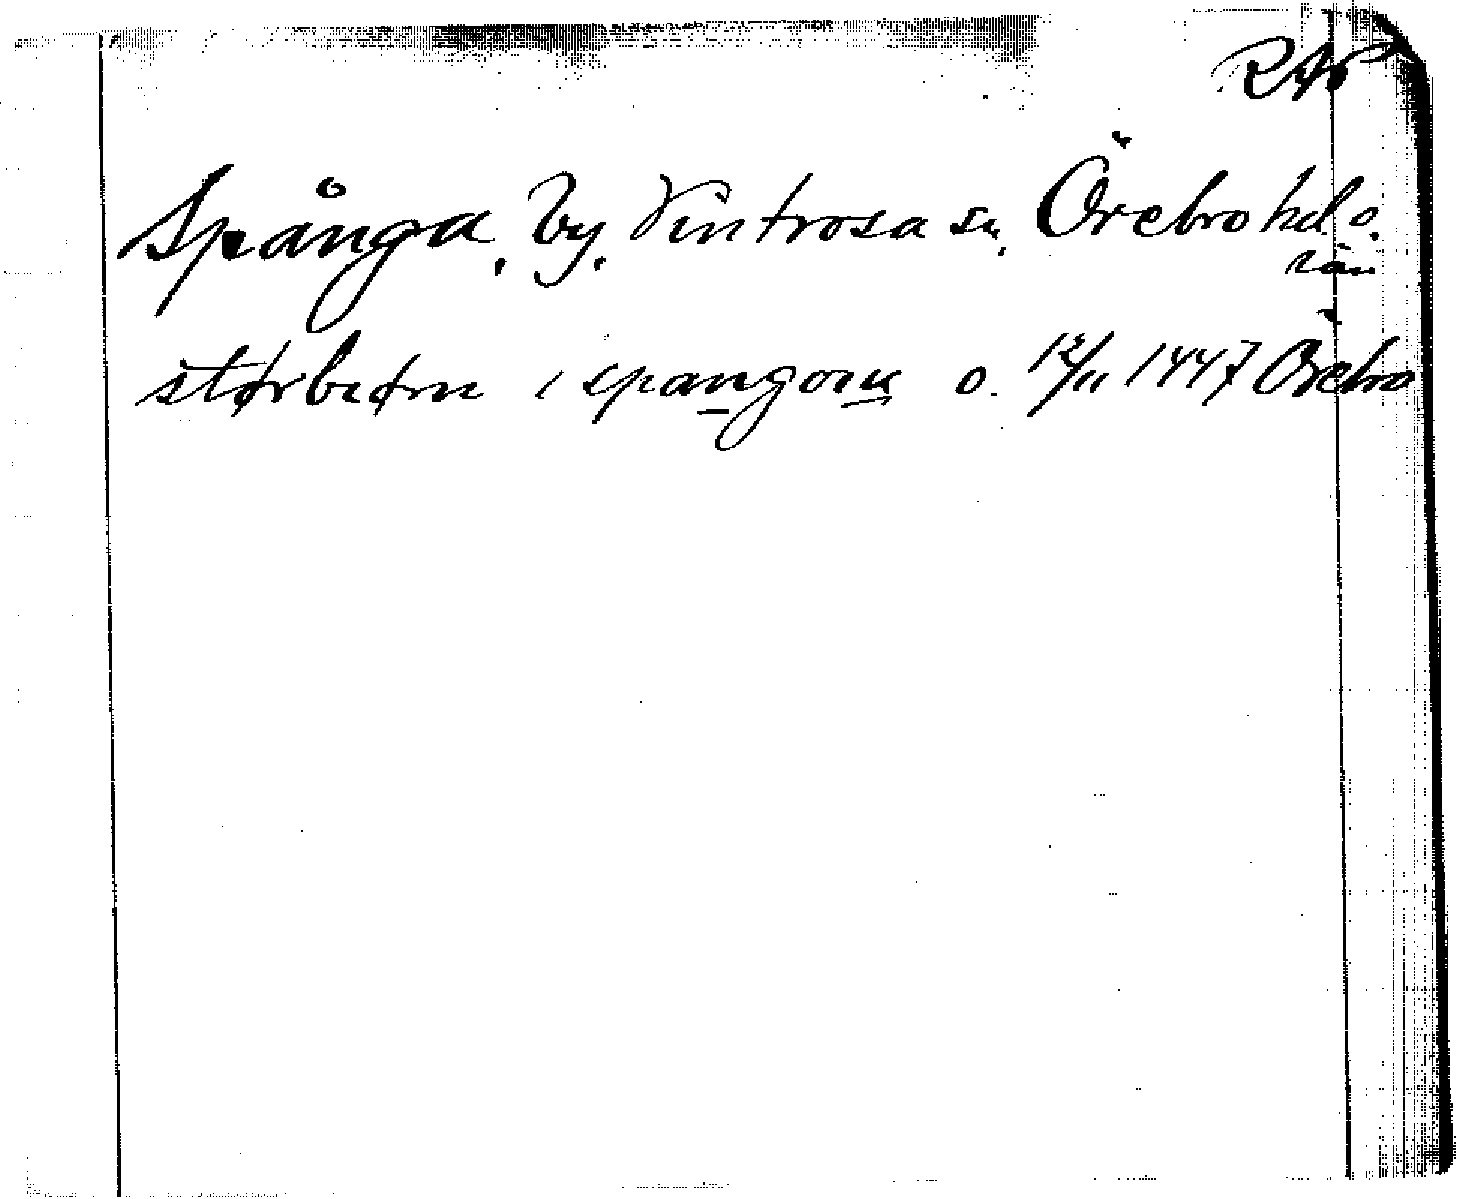 RAP
Spånga, by, Vintrosa sn, Örebro hd o.
län
størbiørn i spangom o. 12/11 1447 Örebro